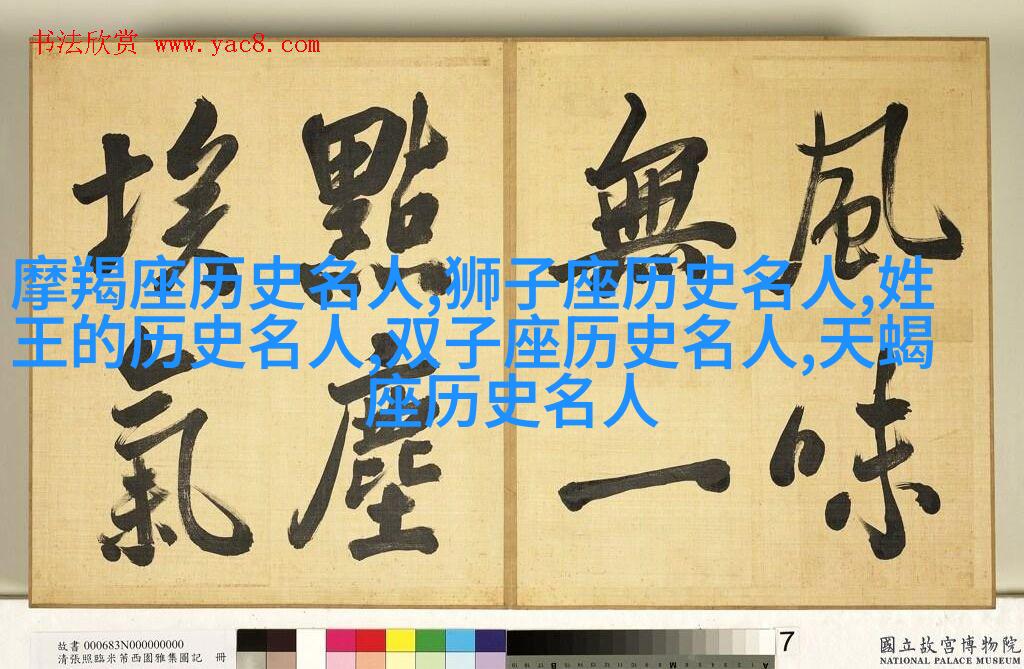 书法欣赏 www.yac8.com
風味
無一
點塵
埃氣
摩羯座历史名人,狮子座历史名人,姓
王的历史名人,双子座历史名人,天蝎
座历史名人
故書 000683N000000000
清張照臨米芾西園雅集圖記 冊
7
國立故宮博物院
NATIONAL PALACE MUSEUM